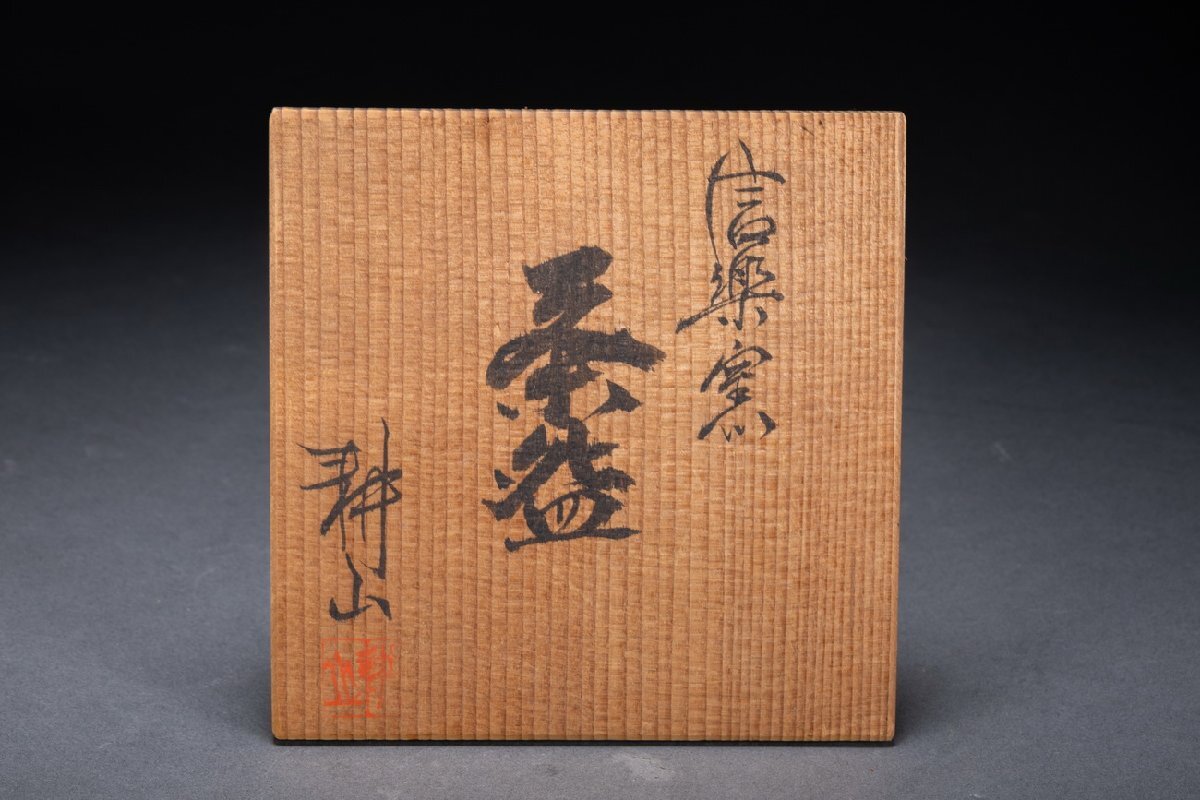 信楽窯
茶盌
耕山